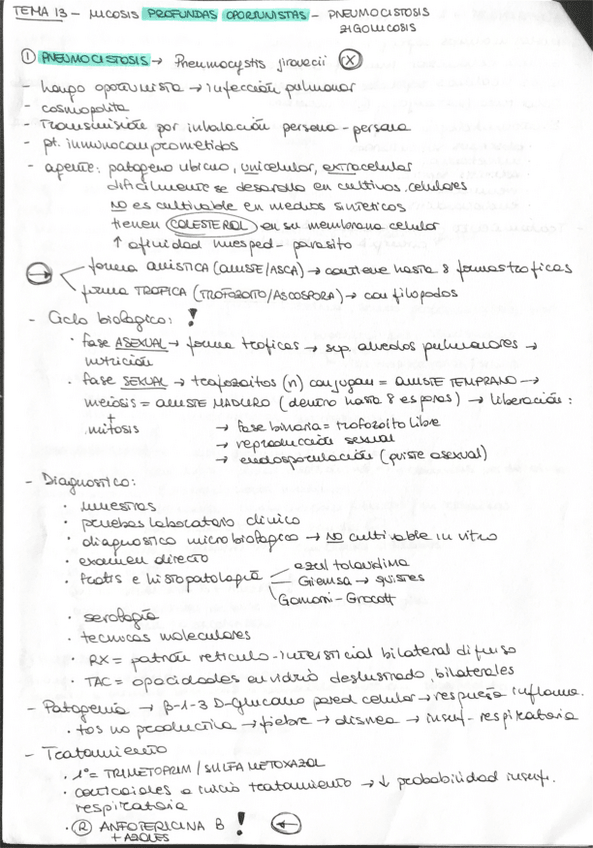 TEMA 13 - MICOSIS PROFUNDAS OPORTUNISTAS - PNEUMOCISTOSIS
ZIGOMICOSIS
① PNEUMOCISTOSIS → Pneumocystis jirovecii Ⓧ
- hongo oportunista → infección pulmonar
- cosmopolita
- Transmisión por inhalación persona - persona
- pt. inmunocomprometidos
- agente: patogeno ubicuo, unicelular, extracelular
dificilmente se desarrolla en cultivos celulares
NO es cultivable en medios sinteticos
tienen COLESTEROL en su membrana celular
↑ afinidad huesped - parasito
forma QUISTICA (QUISTE/ASCA) → contiene hasta 8 formas troficas
forma TROFICA (TROFOZOITO/ASCOSPORA) → con filopodos
- Ciclo biologico: !
· fase ASEXUAL → forma troficas → sup. alveolos pulmonares →
nutrición
· fase SEXUAL → trofozoitos (n) conjugan = QUISTE TEMPRANO →
meiosis = QUISTE MADURO (dentro hasta 8 esporas) → liberación:
+
mitosis
→ fase binaria = trofozoito libre
→ reproducción sexual
→ endosporulación (quiste asexual)
- Diagnostico:
· muestras
· pruebas laboratorio clinico
· diagnostico microbiologico → NO cultivable in vitro
· examen directo
· frotis e histopatologia
azul toluidina
Giemsa → quistes
Gomori - Grocott
· serologia
· tecnicas moleculares
· RX = patrón reticulo-intersticial bilateral difuso
· TAC = opacidades en vidrio deslustrado, bilaterales
- Patogenia → β-1-3 D-glucano pared celular → respuesta inflama.
· tos no productiva → fiebre → disnea → insuf. respiratoria
- Tratamiento
· 1º = TRIMETOPRIM / SULFAMETOXAZOL
· corticoides a inicio tratamiento → ↓ probabilidad insuf.
respiratoria
· Ⓡ ANFOTERICINA B !
+ AZOLES